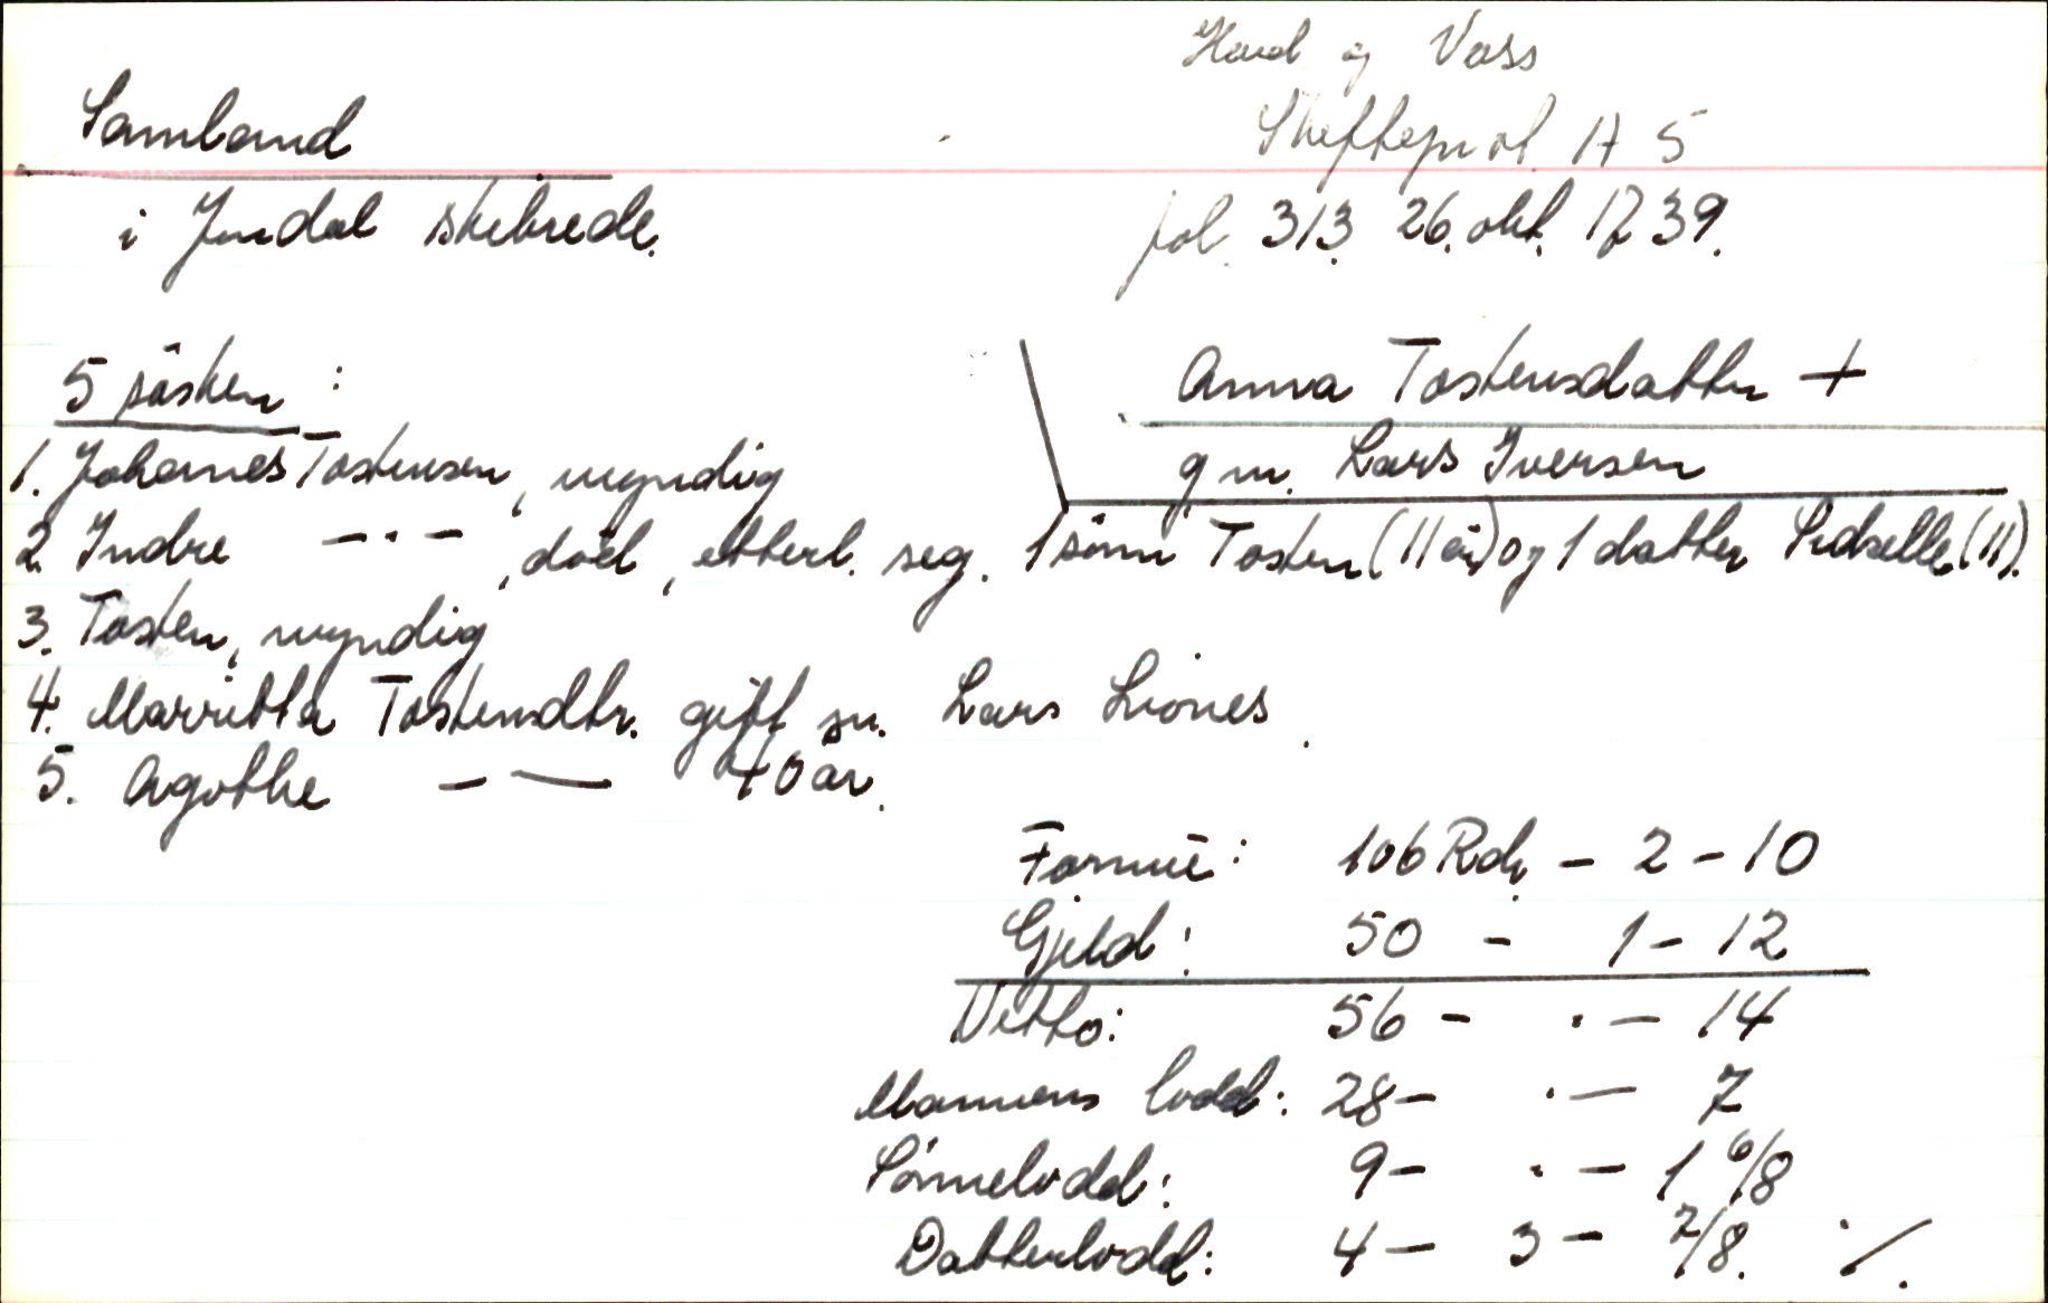 Hard og Voss
Samland
Skifteprot. A 5
i Jondal skibrede.
fol. 313. 26. okt. 1739.
5 søsken :
Anna Tostensdatter +
g m. Lars Iversen
1. Johannes Tostensen, myndig
2. Indre -·-, død, etterl. seg. 1 sønn Tosten (11 år) og 1 datter Sidselle (11).
3. Tosten, myndig
4. Marritta Tostensdtr. gift m. Lars Liones.
5. Agothe - — 40 år.
Formue: 106 Rdr. - 2 - 10
Gjeld: 50 - 1 - 12
Netto: 56 - · - 14
Mannens lodd: 28 - · - 7
Sønnelodd: 9 - · - 1 6/8
Datterlodd: 4 - 3 - 7/8. ·/.